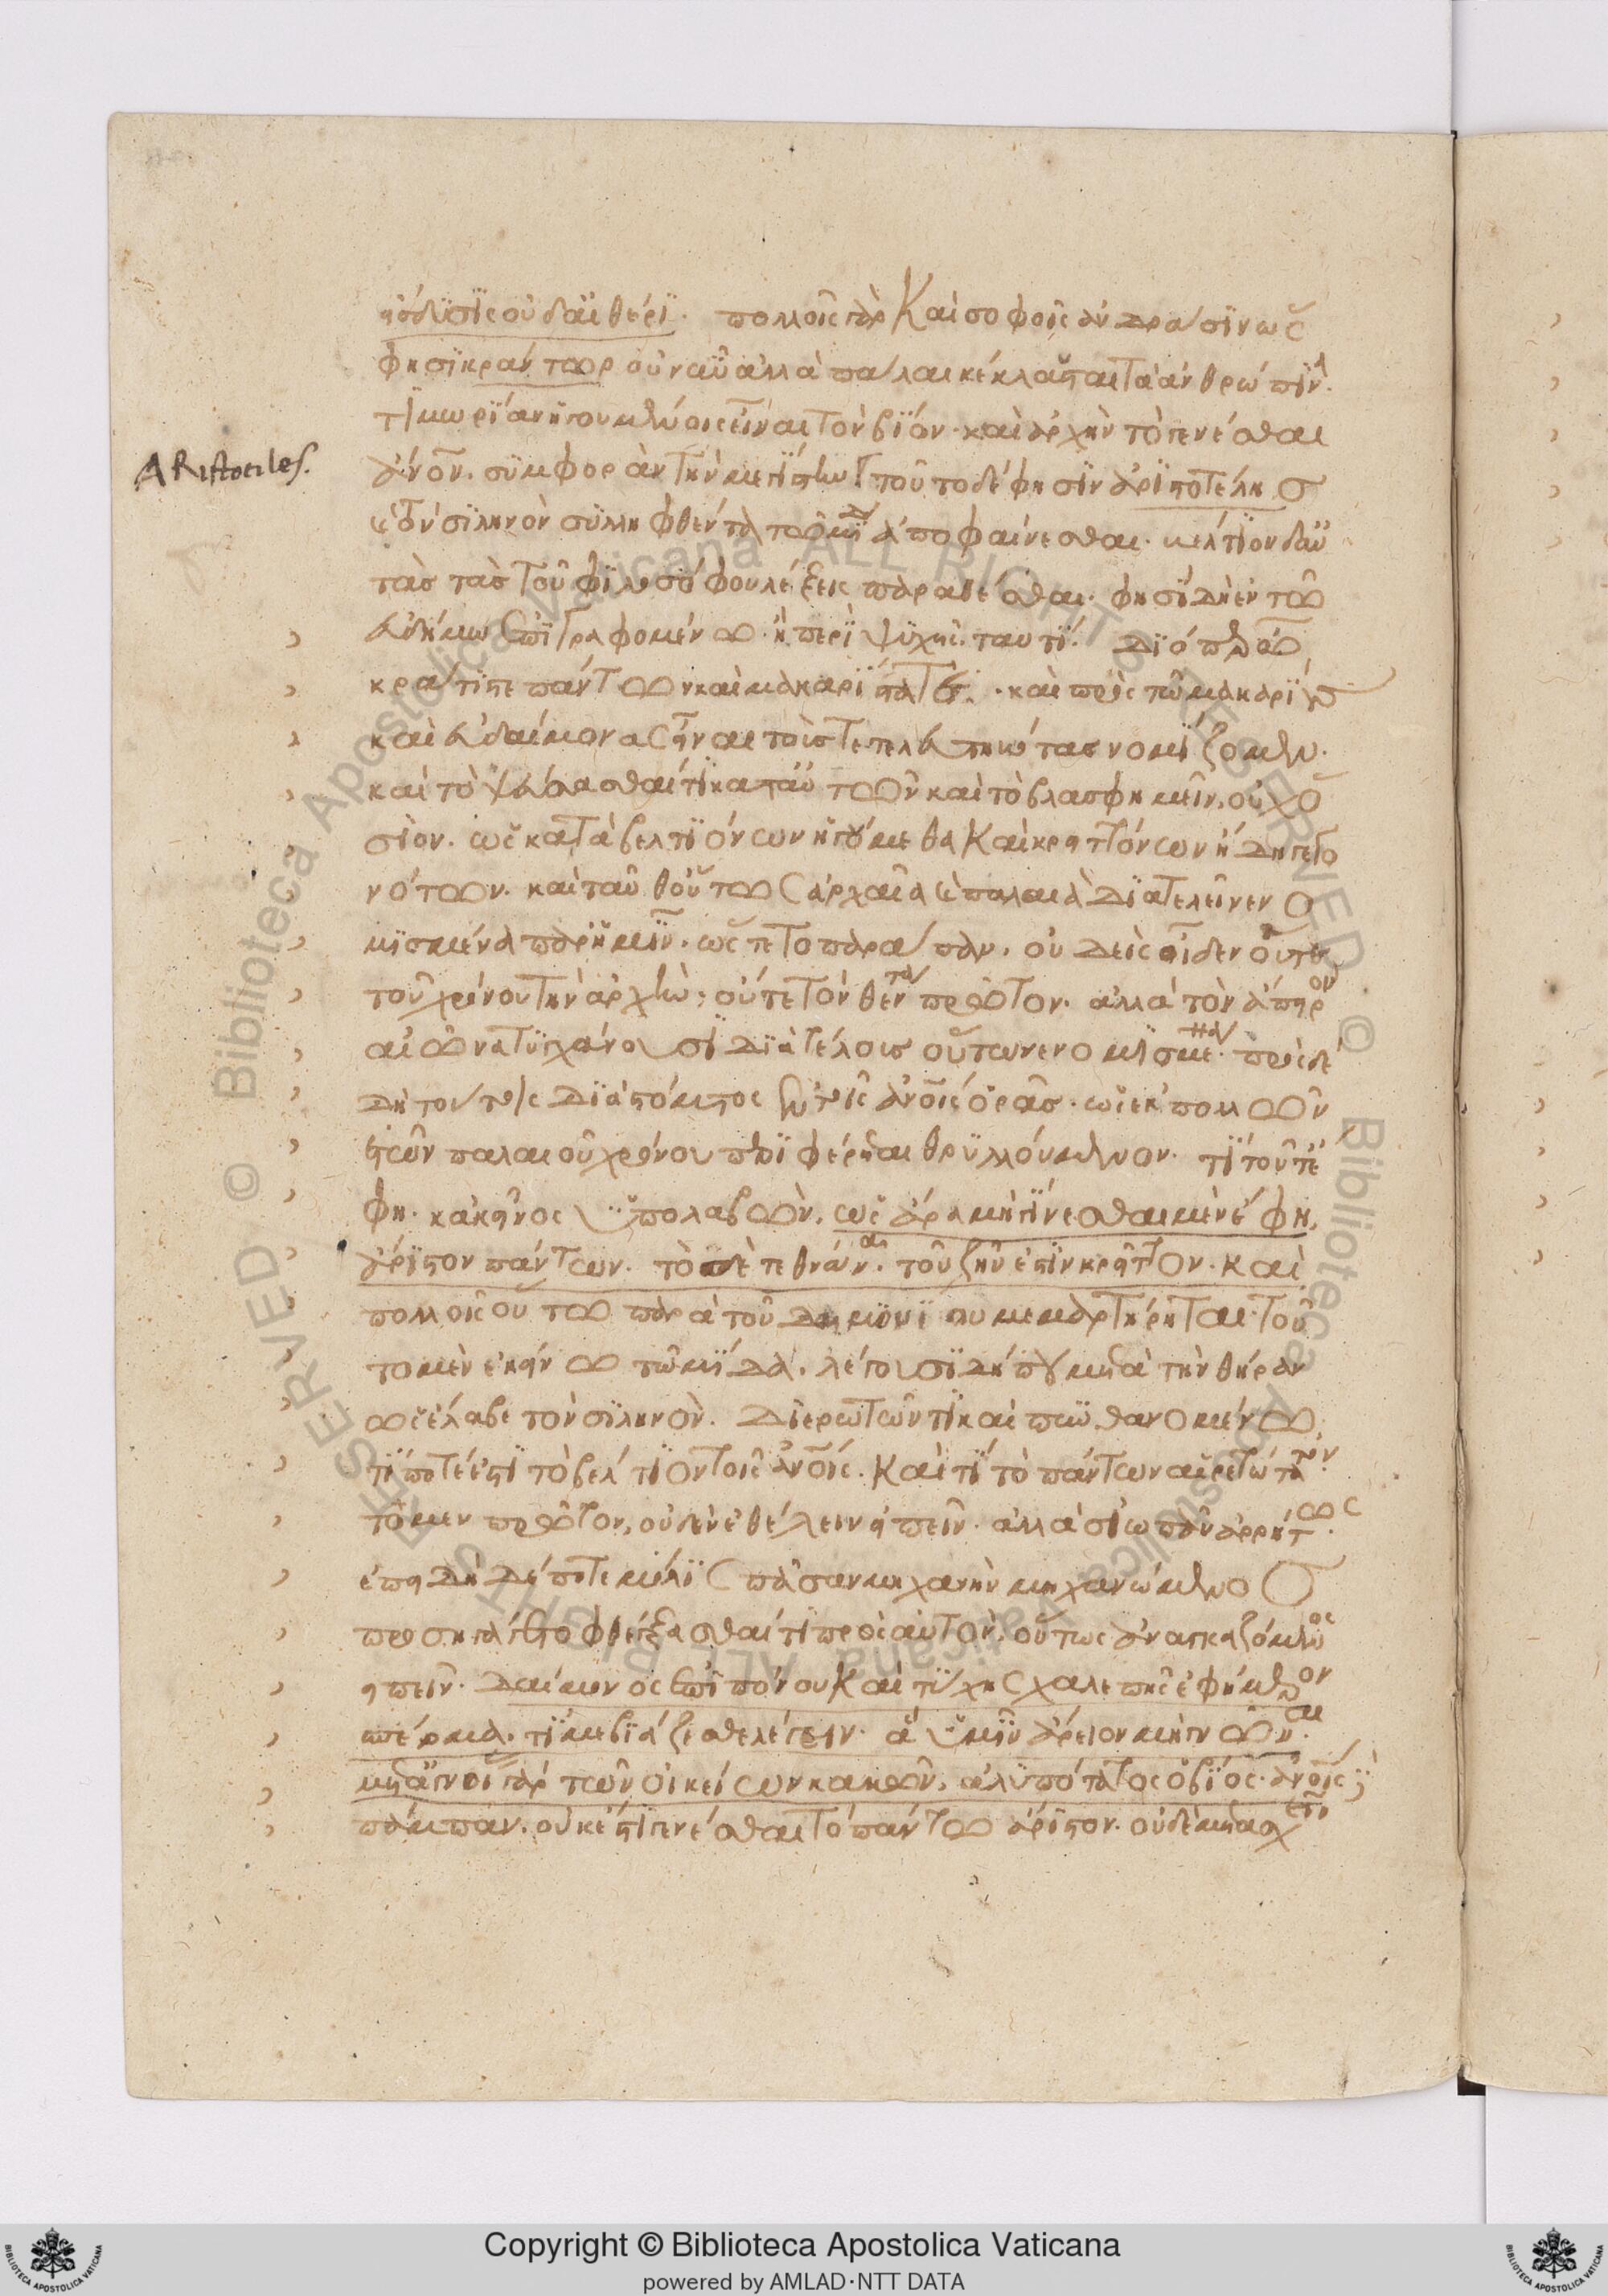 πολλοῖς γὰρ καὶ σοφοῖς ἀνδράσιν ὡς
φησὶ κράντωρ οὐ νῦν ἀλλὰ πάλαι κέκλαυσται τὰ ἀνθρώπινα.
τιμωρίαν ἡγουμένοις εἶναι τὸν βίον. καὶ ἀρχὴν τὸ γενέσθαι
ARistotiles.
ἄνον. συμφορὰν τὴν μεγίστην. τοῦτο δέ φησιν ἀριστοτέλης
καὶ τὸν σιληνὸν συλληφθέντα τῶ μίδα ἀποφαίνεσθαι. βέλτιον δ' αὐ
τὰς τὰς τοῦ φιλοσόφου λέξεις παραθέσθαι. φησὶ δὴ ἐν τῶ
εὐδήμω ἐπιγραφομένω. ἢ περὶ ψυχῆς. ταυτί. διόπερ ὦ
κράτιστε πάντων καὶ μακαριστότατε. καὶ πρὸς τῶ μακαρίους
καὶ εὐδαίμονας εἶναι τοὺς τετελευτηκότας νομίζομεν.
καὶ τὸ ψεύσασθαί τι κατ' αὐτῶν καὶ τὸ βλασφημεῖν, οὐχ ὅ
σιον. ὡς κατὰ βελτιόνων ἡγούμεθα καὶ κρειττόνων ἤδη γεγο
νότων. καὶ ταῦθ' οὕτως ἀρχαῖα καὶ παλαιὰ διατελεῖ νενο
μισμένα παρ' ἡμῖν. ὡς γε τὸ παράπαν. οὐδεὶς οἶδεν οὔτε
τοῦ χρόνου τὴν ἀρχὴν, οὔτε τὸν θέντα πρῶτον. ἀλλὰ τὸν ἄπειρον
αἰῶνα τυγχάνουσι διὰ τέλους οὕτω νενομισμένα. πρὸς δὲ
δὴ τούτοις διὰ στόματος ὂν τοῖς ἀνοῖς ὁρᾶς. ὡς ἐκ πολλῶν
ἐτῶν παλαιοῦ χρόνου περιφέρεται θρυλλούμενον. τί τοῦτ' ἔ
φη. κἀκεῖνος ὑπολαβὼν. ὡς ἄρα μὴ γίνεσθαι μὲν ἔφη,
ἄριστον πάντων. τὸ δὲ τεθνάναι. τοῦ ζῆν ἐστὶν κρεῖττον. καὶ
πολλοῖς οὕτω παρὰ τοῦ δαιμονίου μεμαρτύρηται. τοῦ
το μὲν ἐκείνω τῶ μίδα. λέγουσι δή που μετὰ τὴν θήραν
ὡς ἔλαβε τὸν σιληνὸν. διερωτῶντι καὶ πυνθανομένω.
τί ποτέ ἐστι τὸ βέλτιον τοῖς ἀνοῖς. καὶ τί τὸ πάντων αἱρετώτατον.
τὸ μὲν πρῶτον, οὐδὲν ἐθέλειν εἰπεῖν. ἀλλὰ σιωπᾶν ἀρρήτως.
ἐπειδὴ δέ ποτε μόλις πᾶσαν μηχανὴν μηχανώμενος
προσηγάγετο φθέγξασθαί τι πρὸς αὐτὸν, οὕτως ἀναγκαζόμενος
εἰπεῖν. δαίμονος ἐπιπόνου καὶ τύχης χαλεπῆς ἐφήμερον
σπέρμα. τί με βιάζεσθε λέγειν. ἃ ὑμῖν ἄρειον μὴ γνῶναι.
μετ' ἀγνοίας γὰρ τῶν οἰκείων κακῶν, ἀλυπότατος ὁ βίος. ἀνοῖς δὲ
πάμπαν. οὐκ ἔστι γενέσθαι τὸ πάντων ἄριστον. οὐδὲ μετασχεῖν